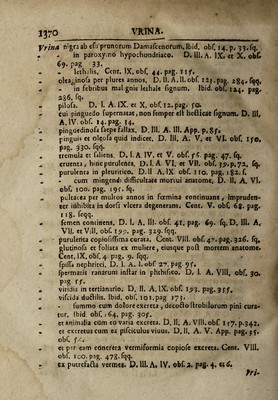 1370 VRINA.
Vrina nigra ab esu prunorum Damascenorum, Ibid. obs. 14. p. 33. sq.
- in paroxysmo hypochondriaco. D. III. A. IX. et X. obs.
69. pag 33.
- - lethalis, Cent. IX. obs. 44. pag. 115.
- oleaginosa per plures annos, D. II. A. II. obs. 121. pag. 284. sqq.
- - in febribus malignis lethale signum. Ibid. obs. 124. pag.
286. sq.
- pilosa. D. I. A. IX. et X. obs. 12. pag. 50.
- cui pinguedo supernatat, non semper est hecticae signum. D. III.
A. IV. obs. 14. pag. 14.
- pinguedinosa saepe fallax. D. III. A. III. App. p. 85.
- pinguis et oleosa quid indicet. D. III. A. V. et VI. obs. 150.
pag. 330. sqq.
- tremula et saliens. D. I. A. IV. et V. obs. 55. pag. 47. sq.
- cruenta, hinc purulenta, D. I. A. VI. et VII. obs. 59. p. 72. sq.
- purulenta in pleuritico. D. II. A. IX. obs. 110. pag. 182. s.
- - cum mingendi difficultate mortui anatome. D. II, A. VI.
obs. 100. pag. 195. sq.
- pultacea per multos annos in foemina continuans, imprudenter
inhibita in dorsi vlcera degenerans. Cent. V. obs. 68. pag.
118. seqq.
- semen continens, D. I. A. III. obs. 41. pag. 69. sq. D. III. A.
VII. et VIII. obs. 195. pag. 329. sqq.
- purulenta copiosissima curata. Cent. VIII. obs. 47. pag. 326. sq.
- glutinosa et foliata ex muliere, eiusque post mortem anatome.
Cent. IX. obs. 4. pag. 9. sqq.
- spissa nephritici, D. I. A. I. obs. 27. pag. 95.
- spermatis ranarum instar in phthisico. D. I. A. VIII. obs. 30.
pag 55.
- viridis in tertianario, D. II. A. IX. obs. 193. pag. 355.
- viscida ductilis. Ibid. obs. 101. pag 173.
- - summo cum dolore excreta, decocto strobilorum pini curatur.
Ibid. obs. 64. pag. 305.
- et animalia cum eo varia excreta. D. II. A. VIII. obs. 117. p. 342.
- et excretus cum ea pisciculus viuus. D. II. A. V. App. pag. 35.
obs.
- et per eam concreta vermiformia copiose excreta. Cent. VIII.
obs. 100. pag. 473. sqq.
- ex putrefacta vermes. D. III. A. IV. obs. 2. pag. 4. et 6.
Vri-